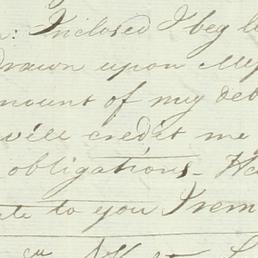 : Inclosed I beg l
drawn upon Mess
mount of my deb
will credit me
obligations - Ha
te to you I rem